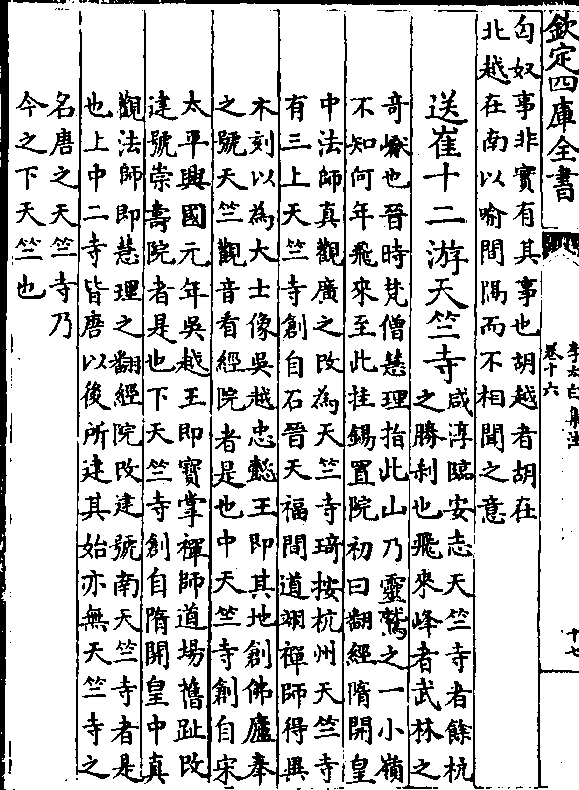 欽定四庫全書
李太白集注
卷十六
十七
匈奴事非實有其事也胡越者胡在
北越在南以喻間隔而不相聞之意
送崔十二游天竺寺
咸淳臨安志天竺寺者餘杭
之勝刹也飛來峰者武林之
奇巘也晉時梵僧慧理指此山乃靈鷲之一小嶺
不知何年飛來至此挂錫置院初曰翻經隋開皇
中法師真觀廣之改為天竺寺琦按杭州天竺寺
有三上天竺寺創自石晉天福間道翊禪師得異
木刻以為大士像吳越忠懿王即其地創佛廬奉
之號天竺觀音看經院者是也中天竺寺創自宋
太平興國元年吳越王即寶掌禪師道場舊趾改
建號崇壽院者是也下天竺寺創自隋開皇中真
觀法師即慧理之翻經院改建號南天竺寺者是
也上中二寺皆唐以後所建其始亦無天竺寺之
名唐之天竺寺乃
今之下天竺也